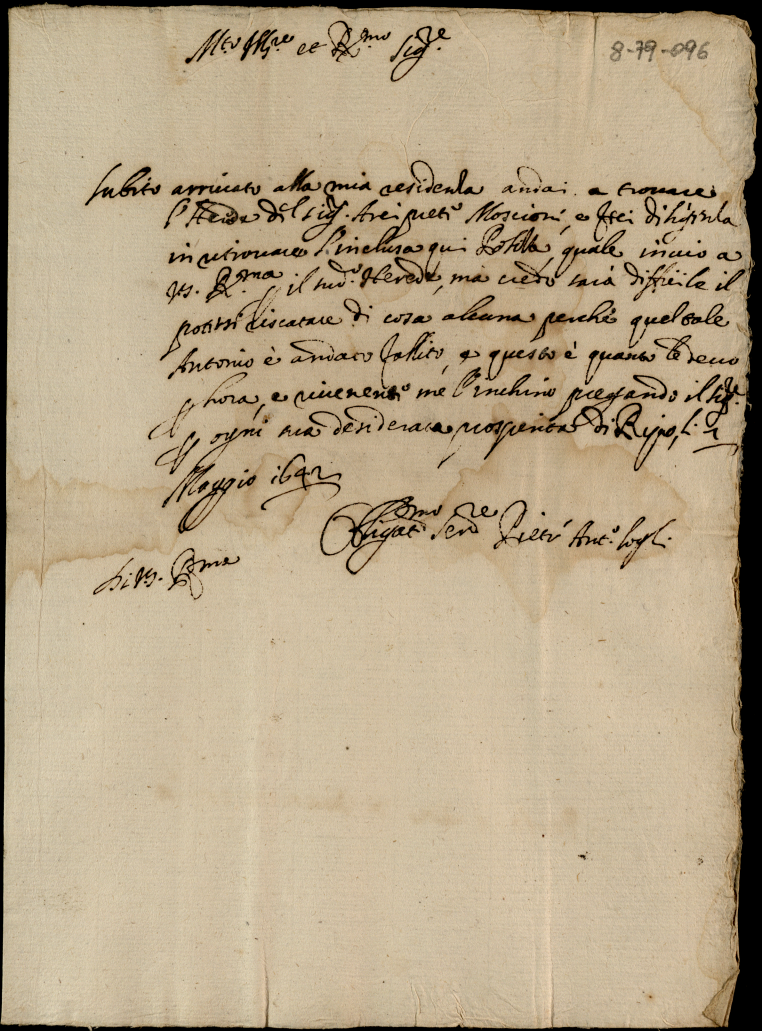 M.to Ill.re et R.mo Sig.re
8-79-096
Subito arrivato alla mia residenza andai a trovare
l'Herede del sig. Arcip.te Moscioni, e feci diligenza
in ritrovare l'inclusa qui Poliza, quale invio a
V.S. R.ma il sud.o Herede, ma credo sarà difficile il
potersi riscatare di cosa alcuna perchè quel tale
Antonio è andato fallito, e questo è quanto le devo
p hora, e riverent.e me l'inchino pregando il Sig.re
p ogni sua desiderata prosperità di Ripo, li 2
Maggio 1642
Obligat.mo Ser.re Pietr' Ant.o
Di V.S. R.ma